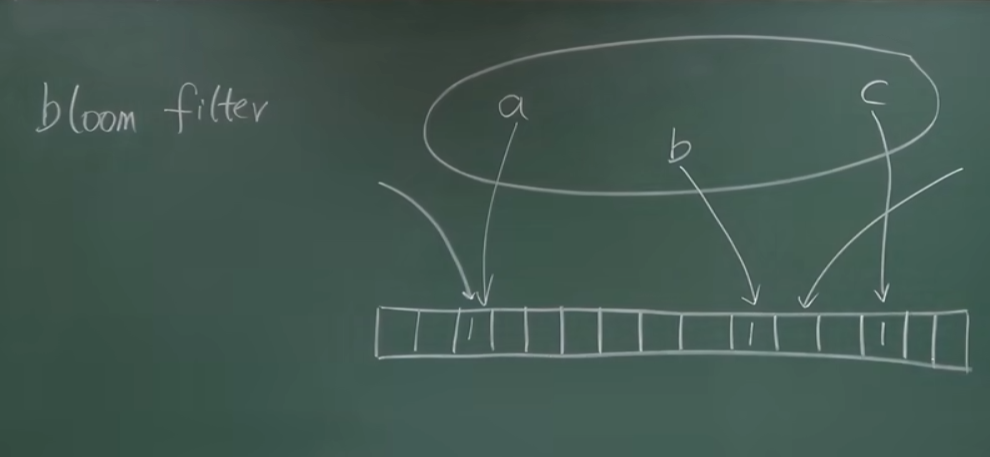 bloom filter
a
b
c
1 1 1